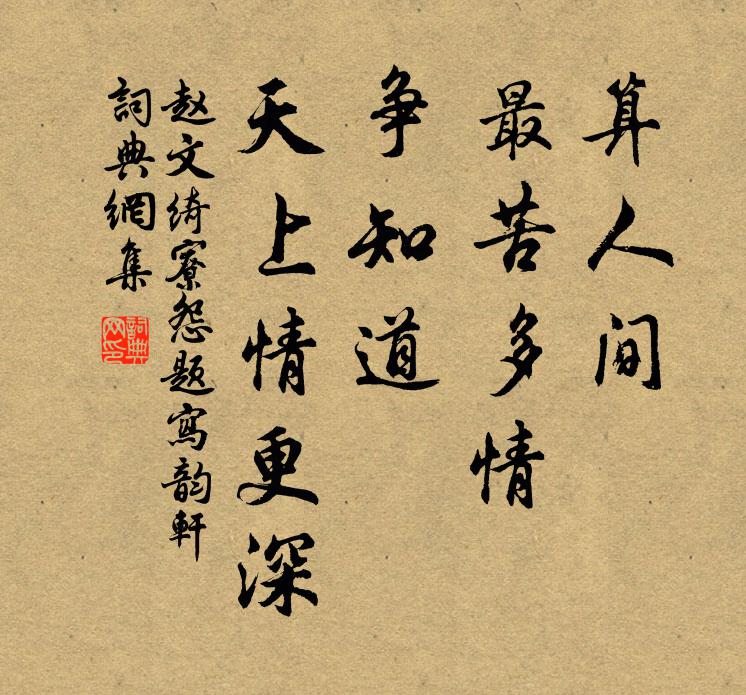 算人間
最苦多情
争知道
天上情更深
赵文绮寮怨题寫韵軒
詞典網集
詞典网印